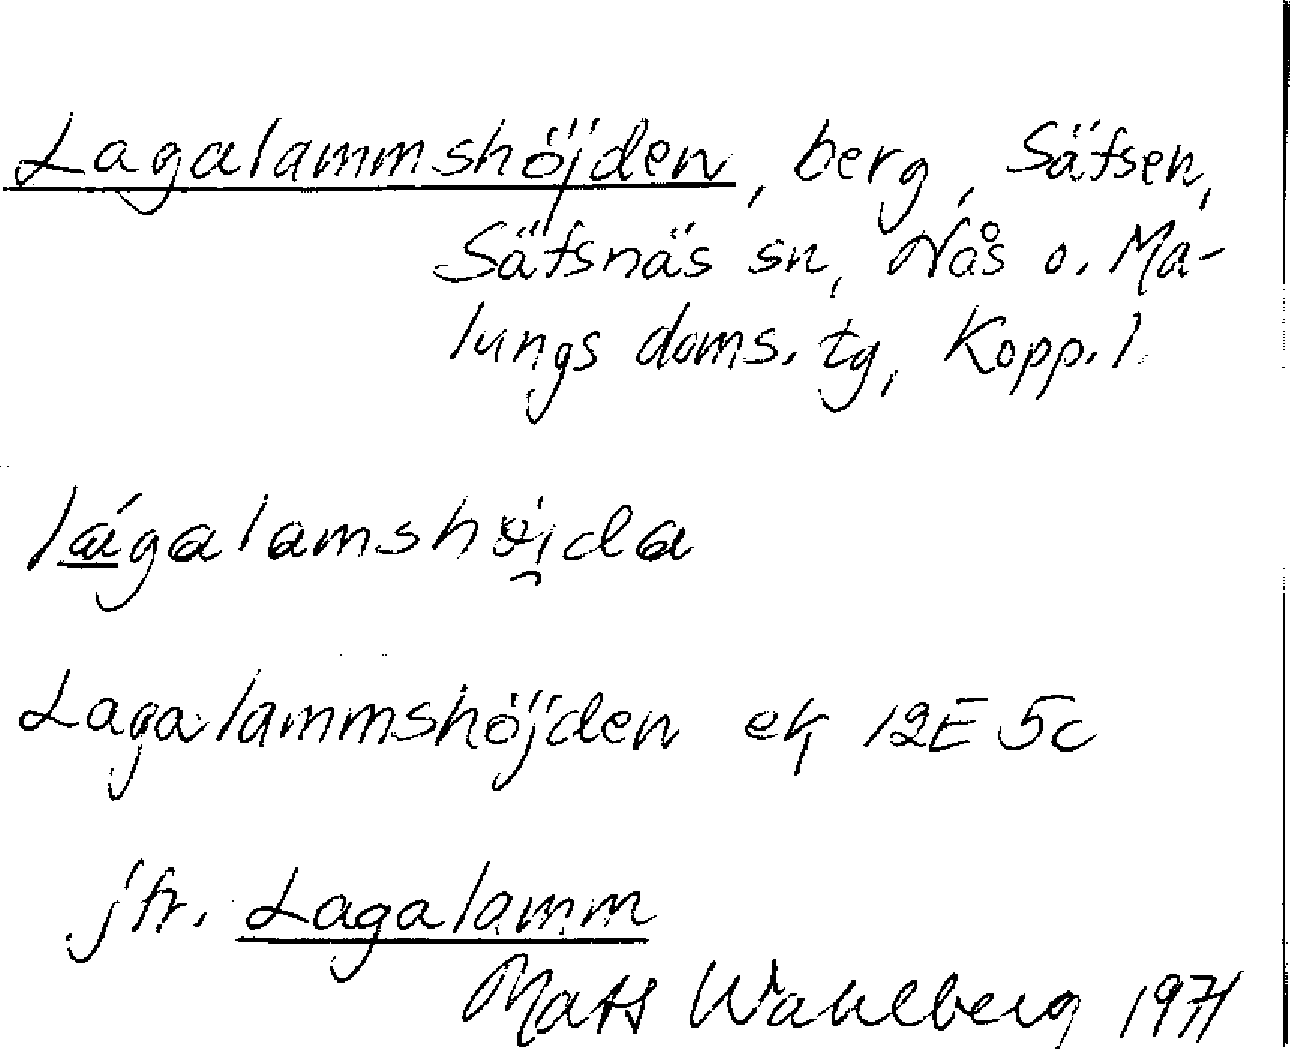 Lagalammshöjden, berg, Säfsen,
Säfsnäs sn, Nås o. Ma-
lungs doms. tg, Kopp. l.
lágalamshöjda
Lagalammshöjden ek 12E 5c
jfr. Lagalamm
Mats Wahlberg 1971